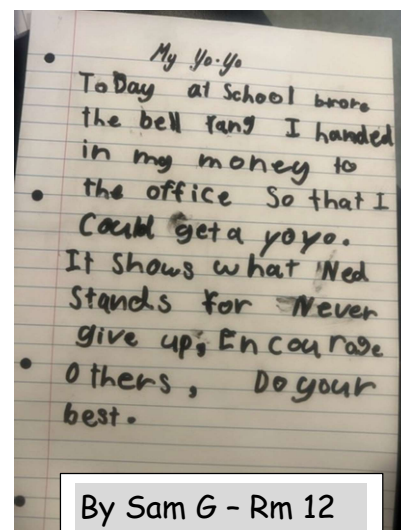 My Yo-Yo
ToDay at School brore
the bell rang I handed
in my money to
the office So that I
Could get a yoyo.
It Shows what Ned
Stands for Never
give up, Encourage
Others, Do your
best.
By Sam G – Rm 12